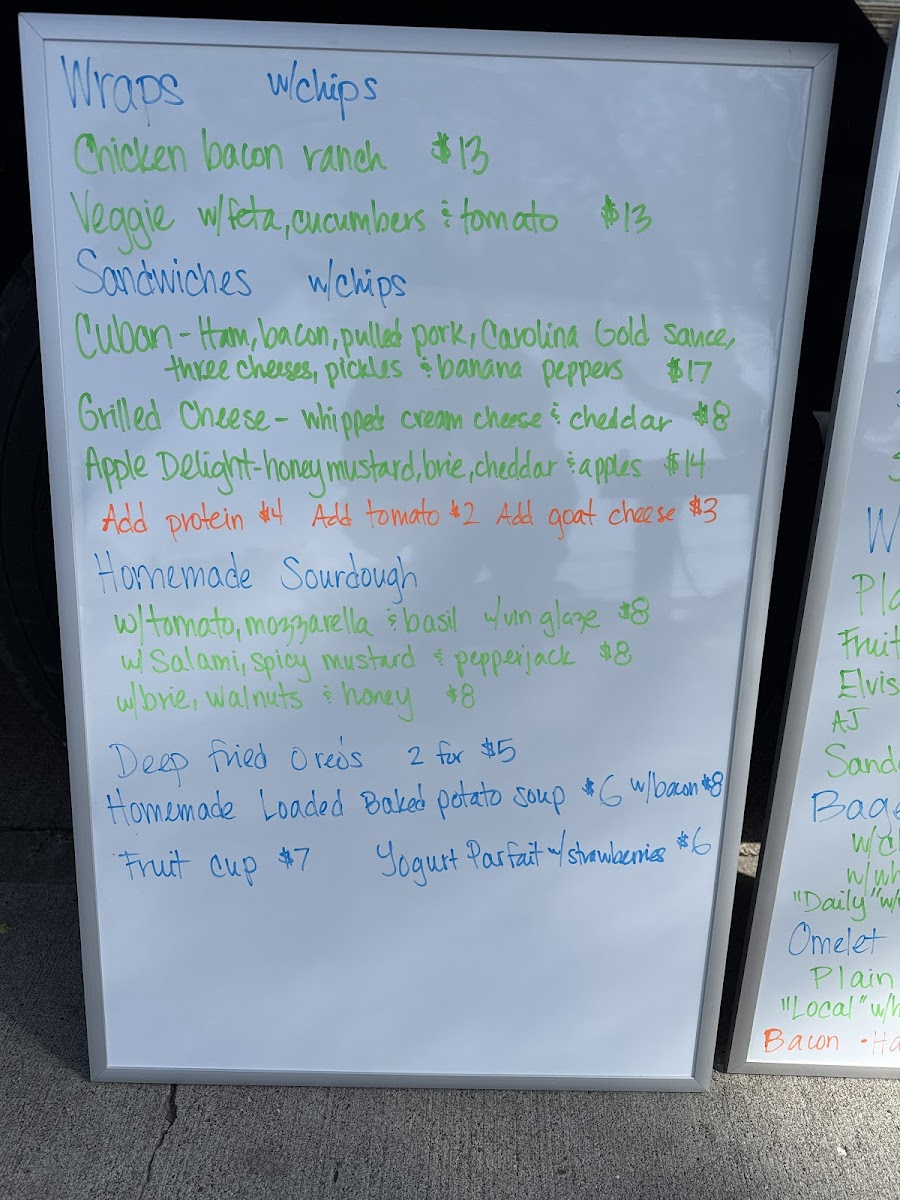 Wraps w/chips
Chicken bacon ranch $13
Veggie w/feta, cucumbers & tomato $13
Sandwiches w/chips
Cuban - Ham, bacon, pulled pork, Carolina Gold sauce,
three cheeses, pickles & banana peppers $17
Grilled Cheese - whipped cream cheese & cheddar $8
Apple Delight - honey mustard, brie, cheddar & apples $14
Add protein $4 Add tomato $2 Add goat cheese $3
Homemade Sourdough
w/tomato, mozzarella & basil w/vin glaze $8
w/Salami, spicy mustard & pepperjack $8
w/brie, walnuts & honey $8
Deep fried oreo's 2 for $5
Homemade Loaded Baked potato soup $6 w/bacon $8
Fruit cup $7 Yogurt Parfait w/strawberries $6
Fruit
Elvis
AJ
"Daily" w/
Omelet
Plain
"Local" w/
Bacon •